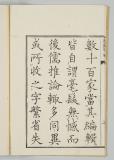 數十百家當其編輯
皆自謂毫髮無憾而
後儒推論輒多同異
或所收之字繁省失